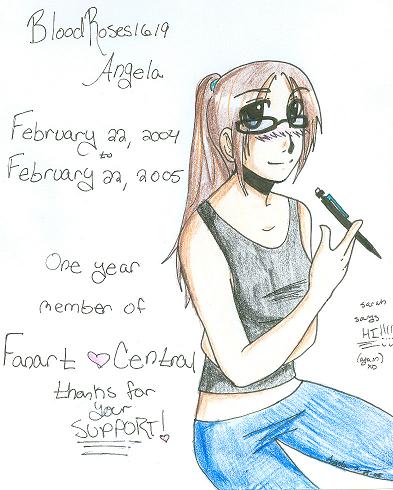 BloodRoses1619
Angela
February 22, 2004
to
February 22, 2005
One year
member of
Fanart Central
thanks for
your
SUPPORT!
sarah
says
HI!!!!
(again)
xo